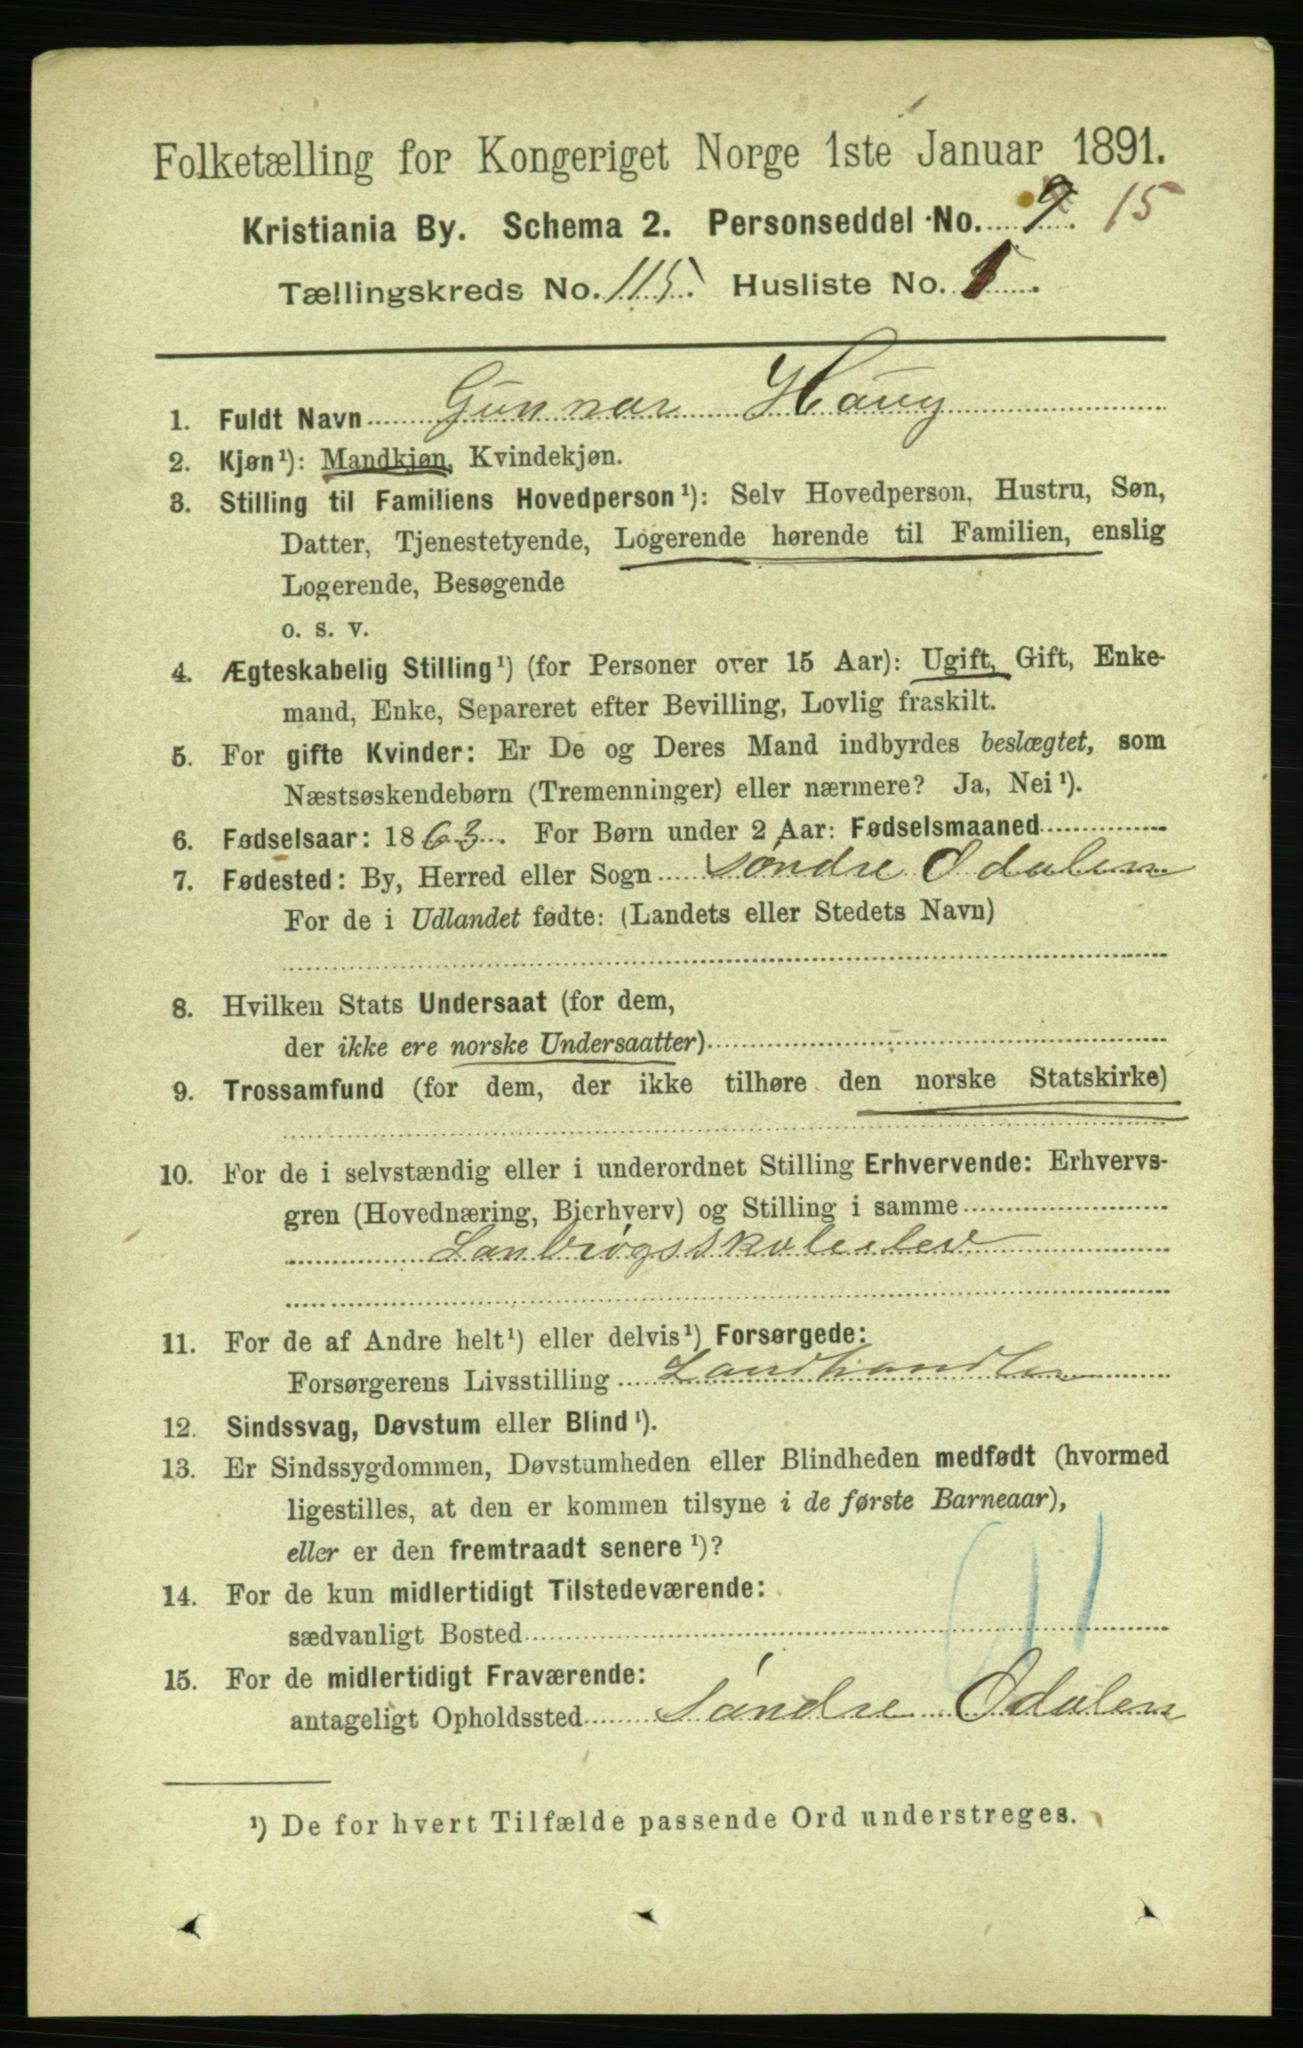 Folketælling for Kongeriget Norge 1ste Januar 1891.
Kristiania By. Schema 2. Personseddel No. 9. 15
Tællingskreds No. 115. Husliste No. 1.
1. Fuldt Navn Gunnar Haug
2. Kjøn¹): Mandkjøn, Kvindekjøn.
3. Stilling til Familiens Hovedperson¹): Selv Hovedperson, Hustru, Søn,
Datter, Tjenestetyende, Logerende hørende til Familien, enslig
Logerende, Besøgende
o. s. v.
4. Ægteskabelig Stilling¹) (for Personer over 15 Aar): Ugift, Gift, Enke-
mand, Enke, Separeret efter Bevilling, Lovlig fraskilt.
5. For gifte Kvinder: Er De og Deres Mand indbyrdes beslægtet, som
Næstsøskendebørn (Tremenninger) eller nærmere? Ja, Nei¹).
6. Fødselsaar: 1863. For Børn under 2 Aar: Fødselsmaaned
7. Fødested: By, Herred eller Sogn Søndre Odalen
For de i Udlandet fødte: (Landets eller Stedets Navn)
8. Hvilken Stats Undersaat (for dem,
der ikke ere norske Undersaatter)
9. Trossamfund (for dem, der ikke tilhøre den norske Statskirke)
10. For de i selvstændig eller i underordnet Stilling Erhvervende: Erhvervs-
gren (Hovednæring, Bierhverv) og Stilling i samme
Lanbrugsskoleelev
11. For de af Andre helt¹) eller delvis¹) Forsørgede:
Forsørgerens Livsstilling Landhandler
12. Sindssvag, Døvstum eller Blind¹).
13. Er Sindssygdommen, Døvstumheden eller Blindheden medfødt (hvormed
ligestilles, at den er kommen tilsyne i de første Barneaar),
eller er den fremtraadt senere¹)?
14. For de kun midlertidigt Tilstedeværende:
sædvanligt Bosted
15. For de midlertidigt Fraværende:
antageligt Opholdssted Søndre Odalen
¹) De for hvert Tilfælde passende Ord understreges.